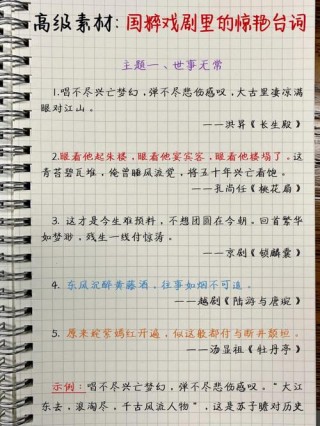 高级素材：国粹戏剧里的惊艳台词
主题一、世事无常
1.唱不尽兴亡梦幻，弹不尽悲伤感叹，大古里凄凉满
眼对江山。
——洪昇《长生殿》
2.眼看他起朱楼，眼看他宴宾客，眼看他楼塌了。这
青苔碧瓦堆，俺曾睡风流觉，将五十年兴亡看饱。
——孔尚任《桃花扇》
3. 这才是今生难预料，不想团圆在今朝。回首繁华
如梦渺，残生一线付惊涛。
——京剧《锁麟囊》
4. 东风沉醉黄藤酒，往事如烟不可追。
——越剧《陆游与唐琬》
5. 原来姹紫嫣红开遍，似这般都付与断井颓垣。
——汤显祖《牡丹亭》
示例：唱不尽兴亡梦幻，弹不尽悲伤感叹。“大江
东去，浪淘尽，千古风流人物”，这是苏子瞻对历史